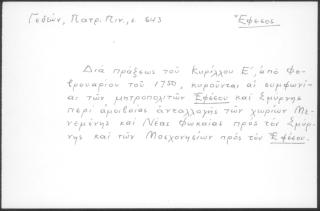 Γεδεών, Πατρ. Πιν., σ. 643
Ἔφεσος
Διά πράξεως τοῦ Κυρίλλου Ε΄, ἀπό Φε-
βρουαρίου τοῦ 1750, κυροῦνται αἱ συμφωνί-
αι τῶν μητροπολιτῶν Ἐφέσου καί Σμύρνης
περί ἀμοιβαίας ἀνταλλαγῆς τῶν χωρίων Με-
νεμένης καί Νέας Φωκαίας πρός τόν Σμύρ-
νης καί τῶν Μοσχονησίων πρός τόν Ἐφέσου.